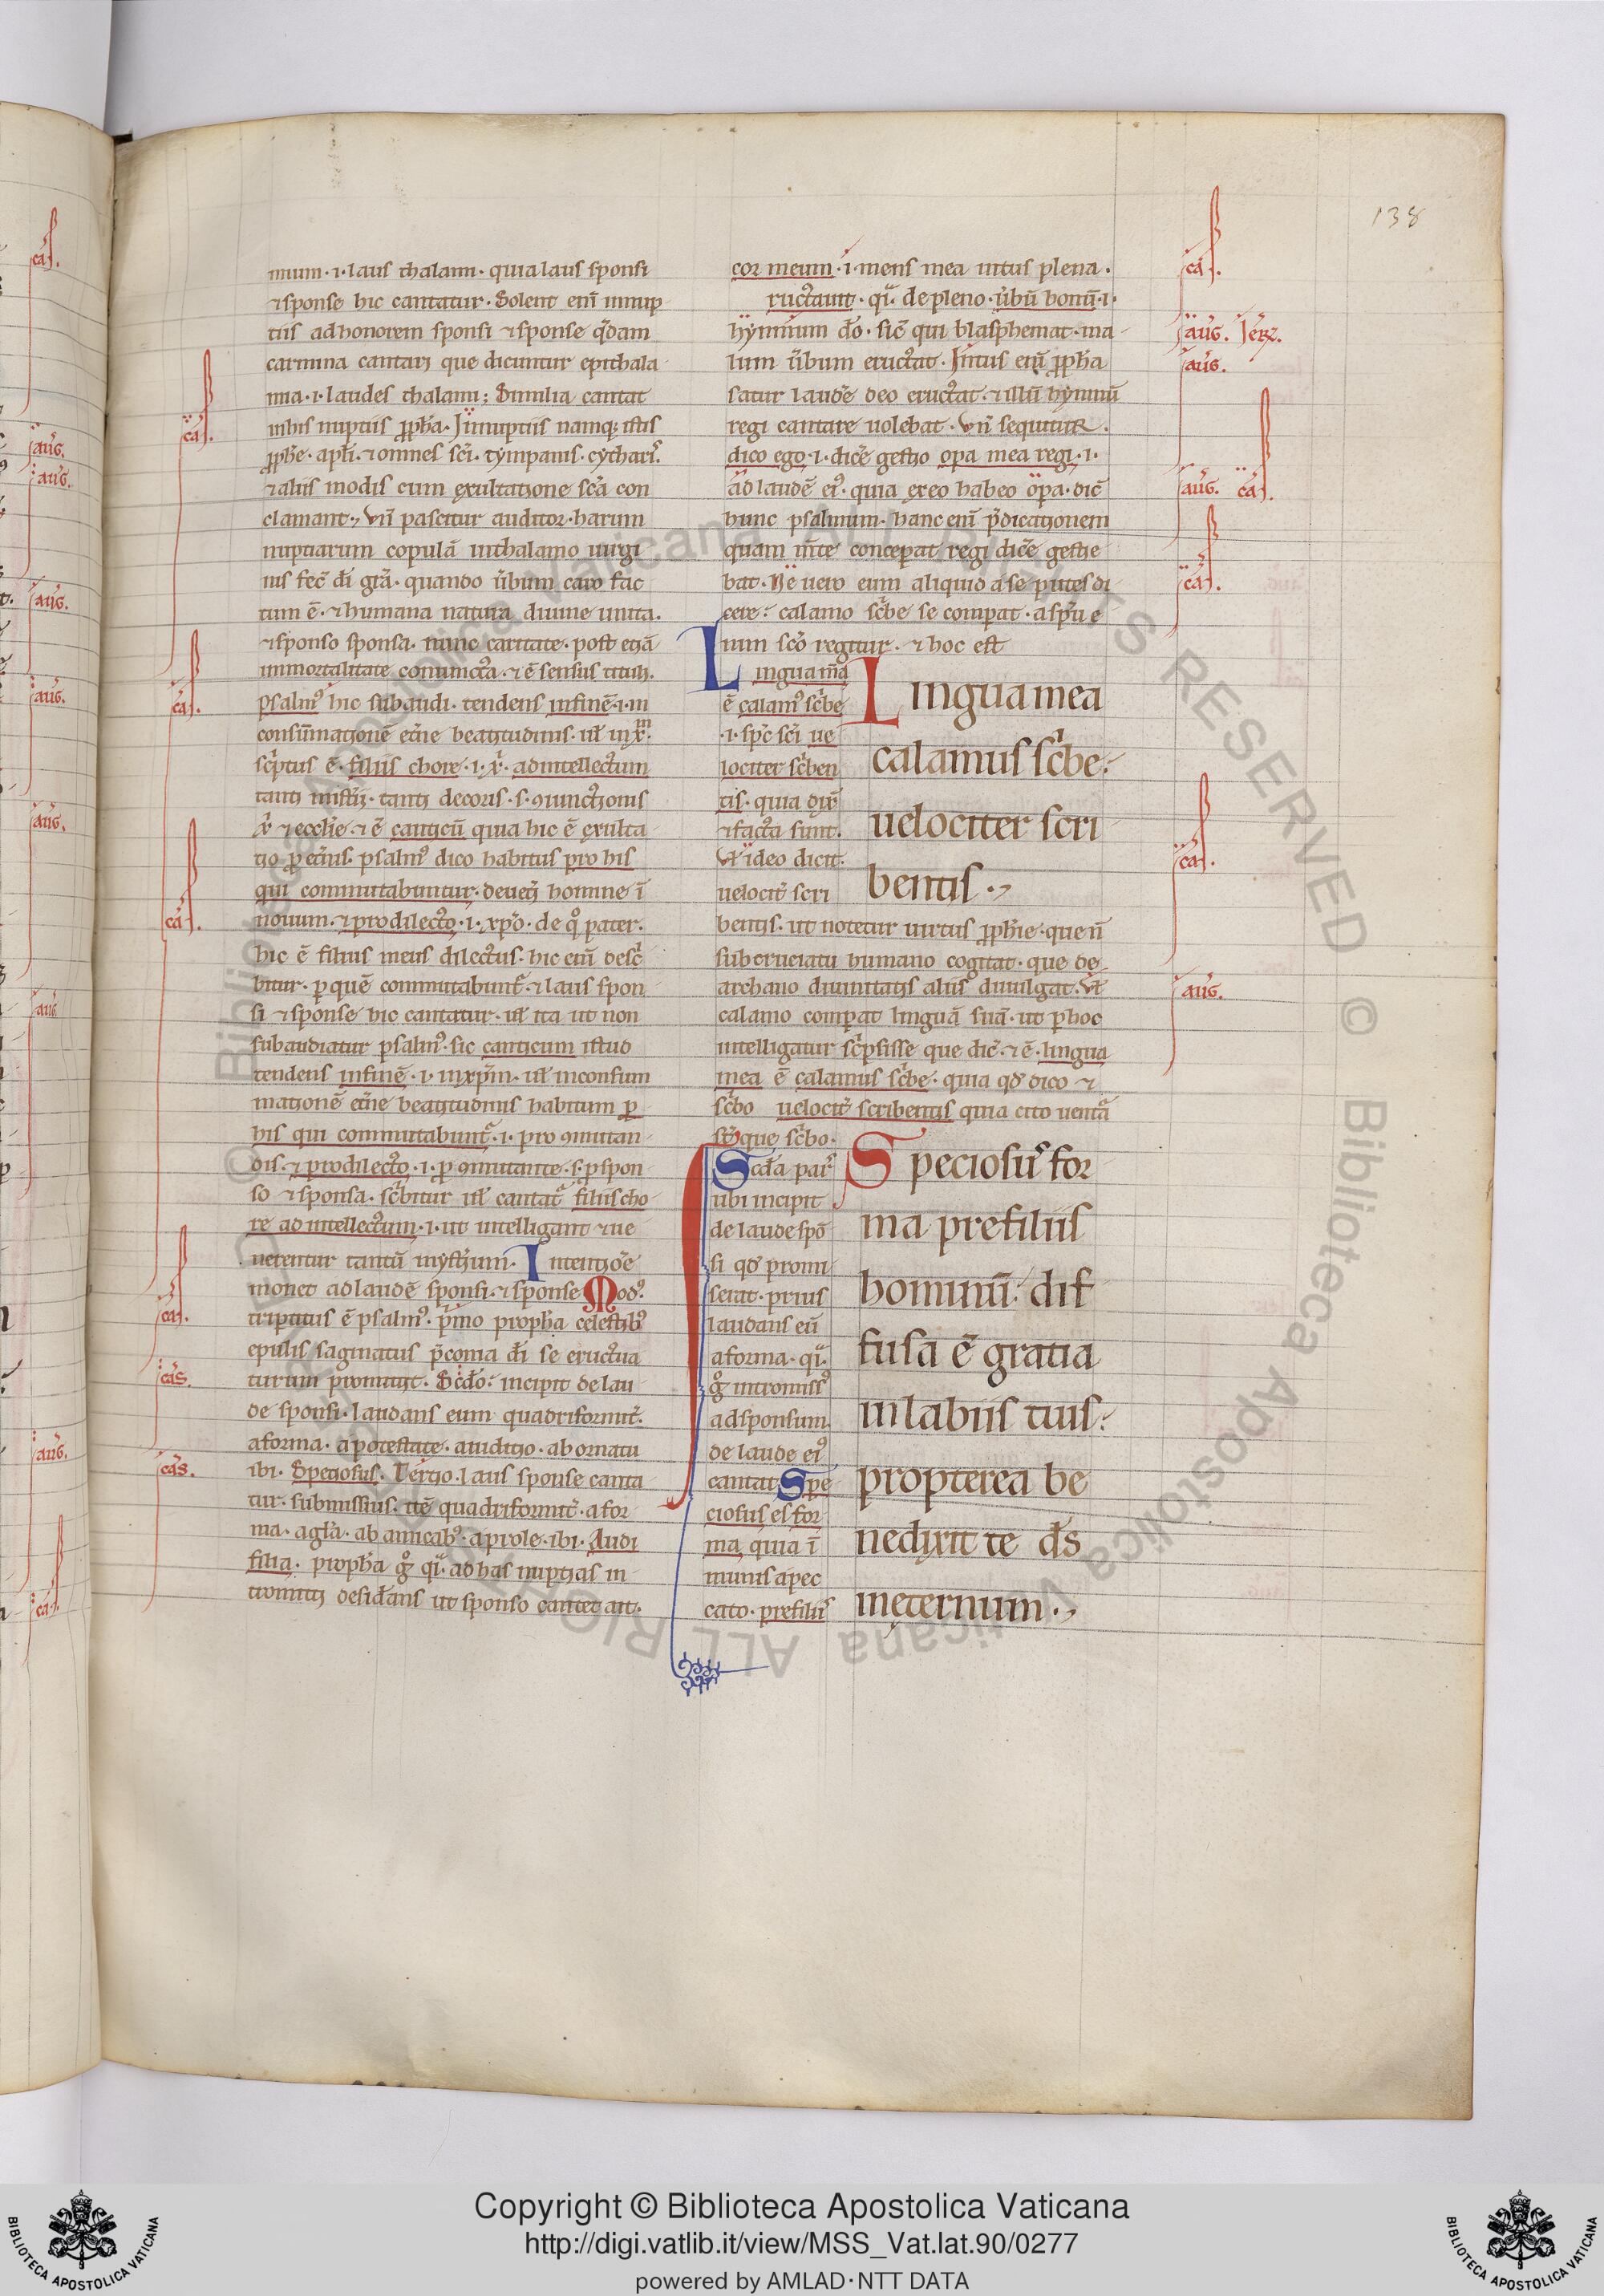 138
mum · i · laus thalami · quia laus sponsi
⁊ sponse hic cantatur · Solent eni᷑ in nup
tiis ad honorem sponsi ⁊ sponse q̇dam
carmina cantari que dicuntur epithala
mia · i · laudes thalami ; Similia cantat
in his nuptiis ꝓph̄a · In nuptiis namq; istis
ꝓph̄e · apl̄i · ⁊ omnes sc̄i · tympanis · cytharis
⁊ aliis modis cum exultatione sc̄a con
clamant · vn̄ pascitur auditor · harum
nuptiarum copulā in thalamo uirgi
nis fec̄ di᷑ gr̄a · quando u̇bum caro fac
tum ē · ⁊ humana natura diuine unita ·
⁊ sponso sponsa · nunc caritate · post etiā
immortalitate coniuncta · ⁊ ē sensus tituli ·
psalmꝰ hic subaudi · tendens in finē · i · in
consūmationē et̄ne beatitudinis · ul̄ in xp̄m ·
sc̄ptus ē · filiis chore · i · xp̄i · ad intellectum
tanti mist̄ii · tanti decoris · s · ꝯiunctionis
xp̄i ⁊ eccl̄ie · ⁊ ē canticū quia hic ē exulta
tio ꝓ et̄nis · psalmꝰ dico habitus pro his
qui commutabuntur · de uet̄i homine ī
nouum · ⁊ pro dilecto · i · xp̄o · de q̊ pater ·
hic ē filius meus dilectus · hic eni᷑ desc̄
bitur · ꝑ quē commutabunt̄ · ⁊ laus spon
si ⁊ sponse hic cantatur · ul̄ ita ut non
subaudiatur psalmꝰ · sic canticum istud
tendens in finē · i · in xp̄m · ul̄ in consum
mationē et̄ne beatitudinis habitum ꝓ
his qui commutabunt̄ · i · pro ꝯmutan
dis · ⁊ pro dilecto · i · ꝓ ꝯmutante · s · ꝓ spon
so ⁊ sponsa · sc̄bitur ul̄ cantat̄ filiis cho
re ad intellectum · i · ut intelligant ⁊ ue
nerentur tantū myst̄ium · Intentiōe
monet ad laudē sponsi · ⁊ sponse Modꝰ ·
tripartitus ē psalmꝰ · p̄mo propha celestibꝰ
epulis saginatus p̄conia di᷑ se eructua
turum promittit · Sc̄do · incipit de lau
de sponsi · laudans eum quadriformit̄ ·
a forma · a potestate · a uiditio · ab ornatu
ibi · Speciosus · Tertio · laus sponse canta
tur · submissius · itē quadriformit̄ · a for
ma · a gl̄a · ab amicabꝰ · a prole · ibi · Audi
filia · propha g̊ qi᷑ · ad has nuptias in
tromitti desid̄ans ut sponso cantet ait ·
cor meum · i · mens mea intus plena ·
ructauit · qi᷑ · de pleno · u̇bū bonū · i ·
hymnum do᷑ · sic̄ qui blasphemat · ma
lum u̇bum eructat · Intus eni᷑ ꝓph̄a
satur laudē deo eructat · ⁊ illū hymnū
regi cantare uolebat · vn̄ sequitur ·
dico ego · i · dicē gestio opera mea regi · i ·
ad laudē eiꝰ · quia ex eo habeo opera · dic̄
hunc psalmum · hanc eni᷑ p̄dicationem
quam m̄te conceperat regi dicē gestie
bat · Ne uero eum aliquid a se putes di
cere · calamo sc̄be se comparat · a sp̄u e
nim sc̄o regitur · ⁊ hoc est
Lingua m̄a
ē calamꝰ sc̄be
· i · spc̄ sc̄i ue
lociter sc̄ben
tis · quia dix̄
⁊ facta sunt ·
Vl̄ ideo dicit ·
uelocit̄ scri
bentis · ut notetur uirtus ꝓph̄ie · que n̄
sub cruciatu humano cogitat · que de
archano diuinitatis aliis diuulgat · Vl̄
calamo comparat linguā suā · ut ꝑ hoc
intelligatur sc̄psisse que dic̄ · ⁊ ē · lingua
mea ē calamus sc̄be · quia qd̄ dico ⁊
sc̄bo uelocit̄ scribentis quia cito uent̄a
st̄ que sc̄bo ·
Lingua mea
calamus sc̄be :
uelociter scri
bentis ·
Scd̄a pars
ubi incipit
de laude spō
si qd̄ promi
serat · prius
laudans eū
a forma · qi᷑ ·
g̊ intromissꝰ
ad sponsum
de laude eiꝰ
cantat Spe
ciosus es for
ma quia ī
munis a pec
cato · pre filiis
Speciosus for
ma pre filiis
hominū : dif
fusa ē gratia
in labiis tuis :
propterea be
nedixit te ds᷑
in eternum ·
ca᷑s.
ca᷑s.
aug. Ier.
aug.
aug. cas.
cas.
cas.
aug.
Copyright © Biblioteca Apostolica Vaticana
http://digi.vatlib.it/view/MSS_Vat.lat.90/0277
powered by AMLAD·NTT DATA
BIBLIOTECA APOSTOLICA VATICANA
BIBLIOTECA APOSTOLICA VATICANA